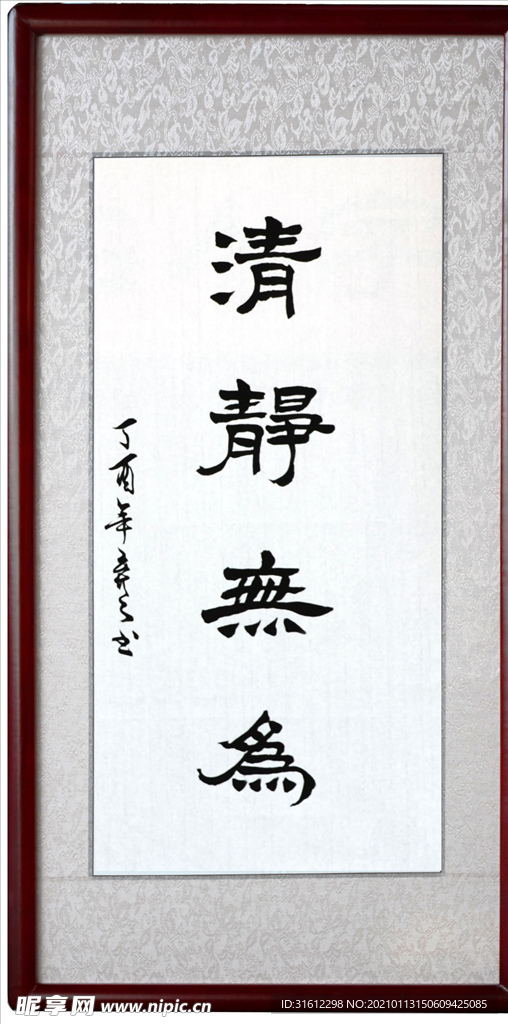 清靜無為
丁酉年弈之书
昵享网 www.nipic.cn
ID:31612298 NO:20210113150609425085